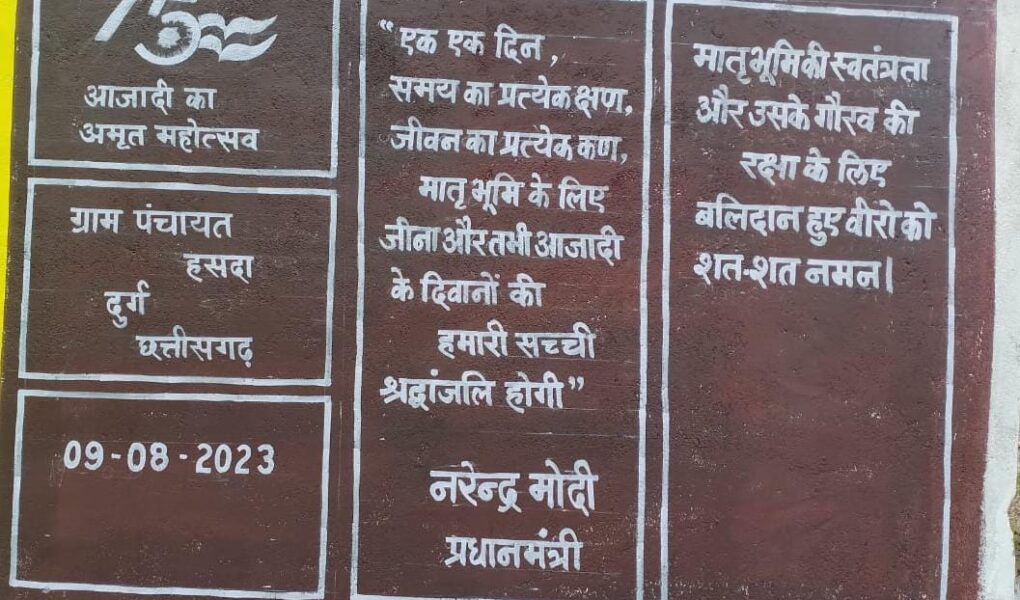 75
आजादी का
अमृत महोत्सव
ग्राम पंचायत
हसदा
दुर्ग
छत्तीसगढ़
09-08-2023
“एक एक दिन,
समय का प्रत्येक क्षण,
जीवन का प्रत्येक कण,
मातृ भूमि के लिए
जीना और तभी आजादी
के दिवानों की
हमारी सच्ची
श्रद्धांजलि होगी”
नरेन्द्र मोदी
प्रधानमंत्री
मातृभूमि की स्वतंत्रता
और उसके गौरव की
रक्षा के लिए
बलिदान हुए वीरो को
शत-शत नमन।